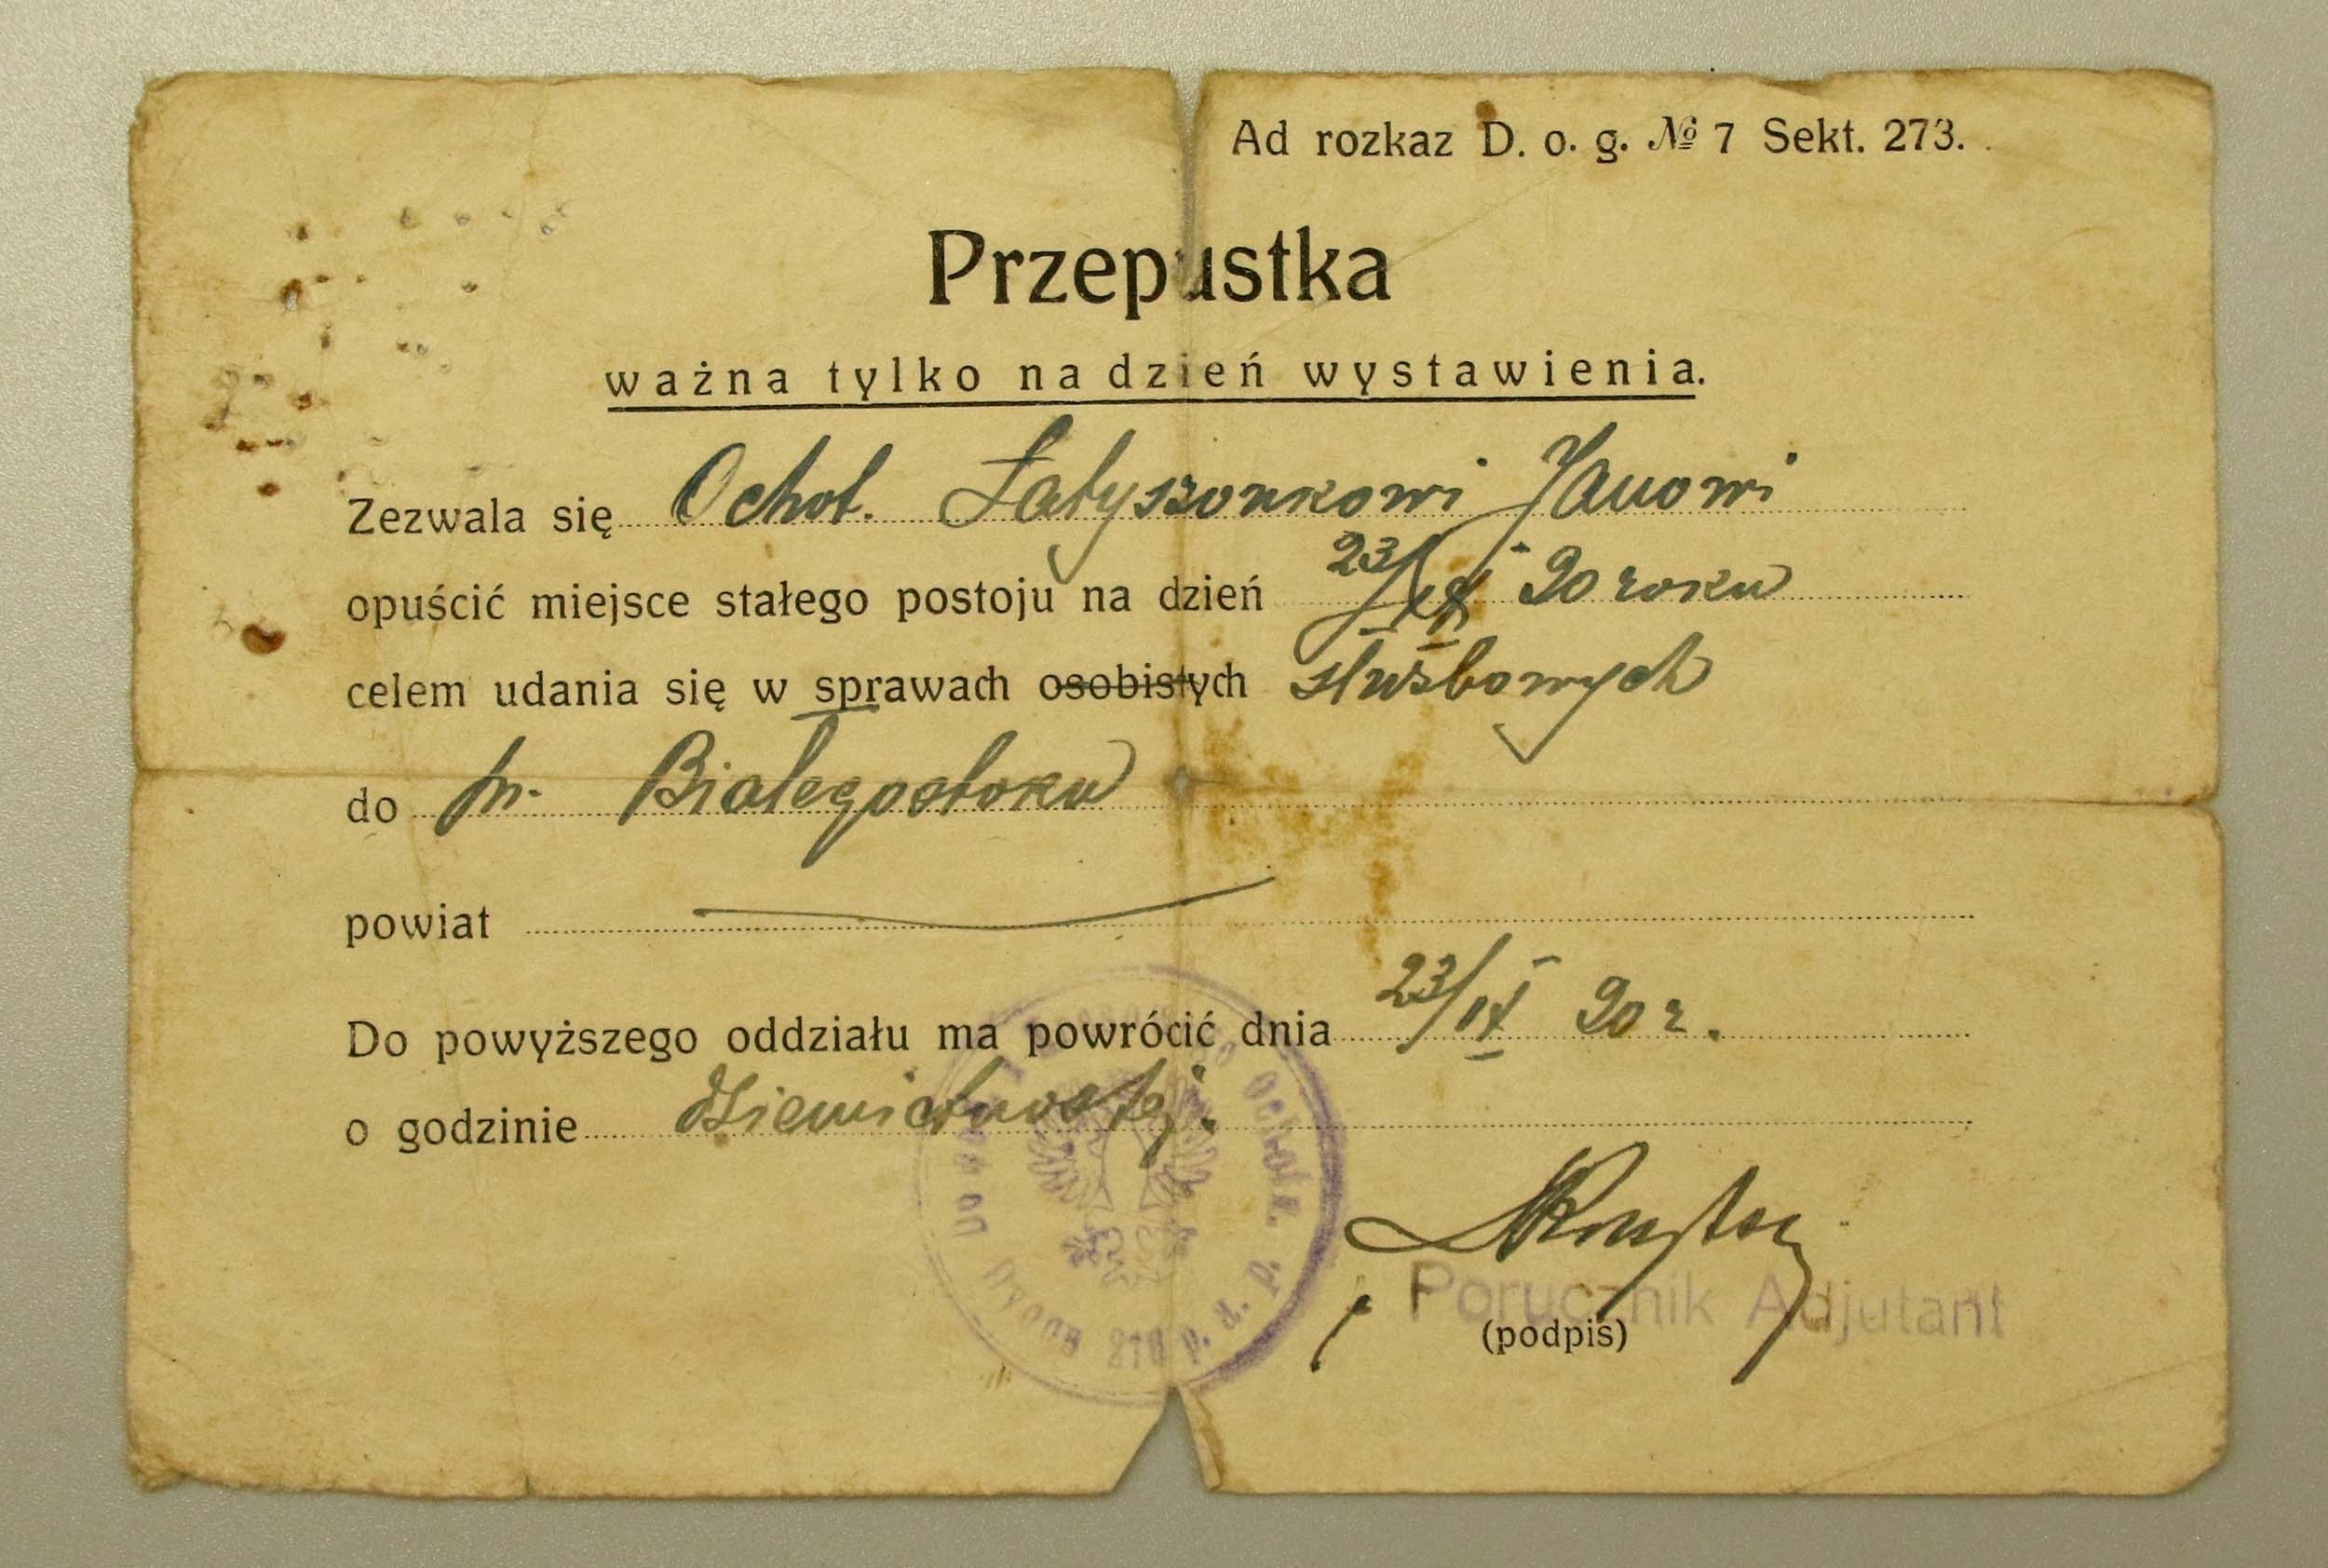 Ad rozkaz D. o. g. № 7 Sekt. 273.
Przepustka
ważna tylko na dzień wystawienia.
Zezwala się Ochot. Łatyszonkowi Janowi
opuścić miejsce stałego postoju na dzień 23/IX 20 roku
celem udania się w sprawach osobistych służbowych
do m. Białegostoku
powiat
Do powyższego oddziału ma powrócić dnia 23/IX 20 r.
o godzinie dziewiętnastej.
Porucznik Adjutant
(podpis)